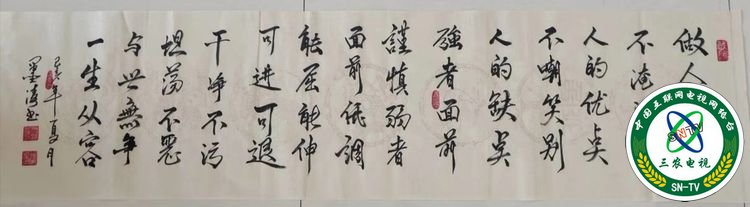 做人
不淹
人的优点
不嘲笑别
人的缺点
强者面前
謹慎弱者
面前低调
能屈能伸
可进可退
干净不污
坦荡不恶
与世無争
一生从容
己亥年夏月
中国互联网电视网络台
SNTV
三农电视
SN-TV